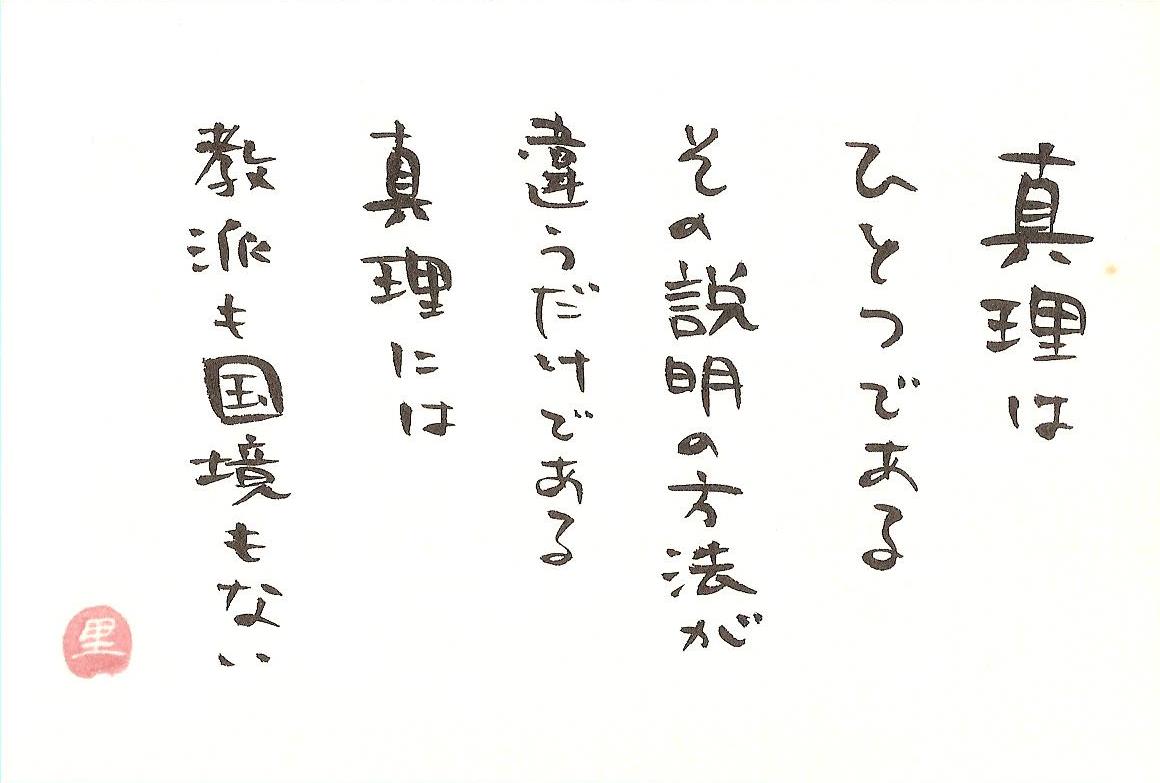 真理は
ひとつである
その説明の方法が
違うだけである
真理には
教派も国境もない
里